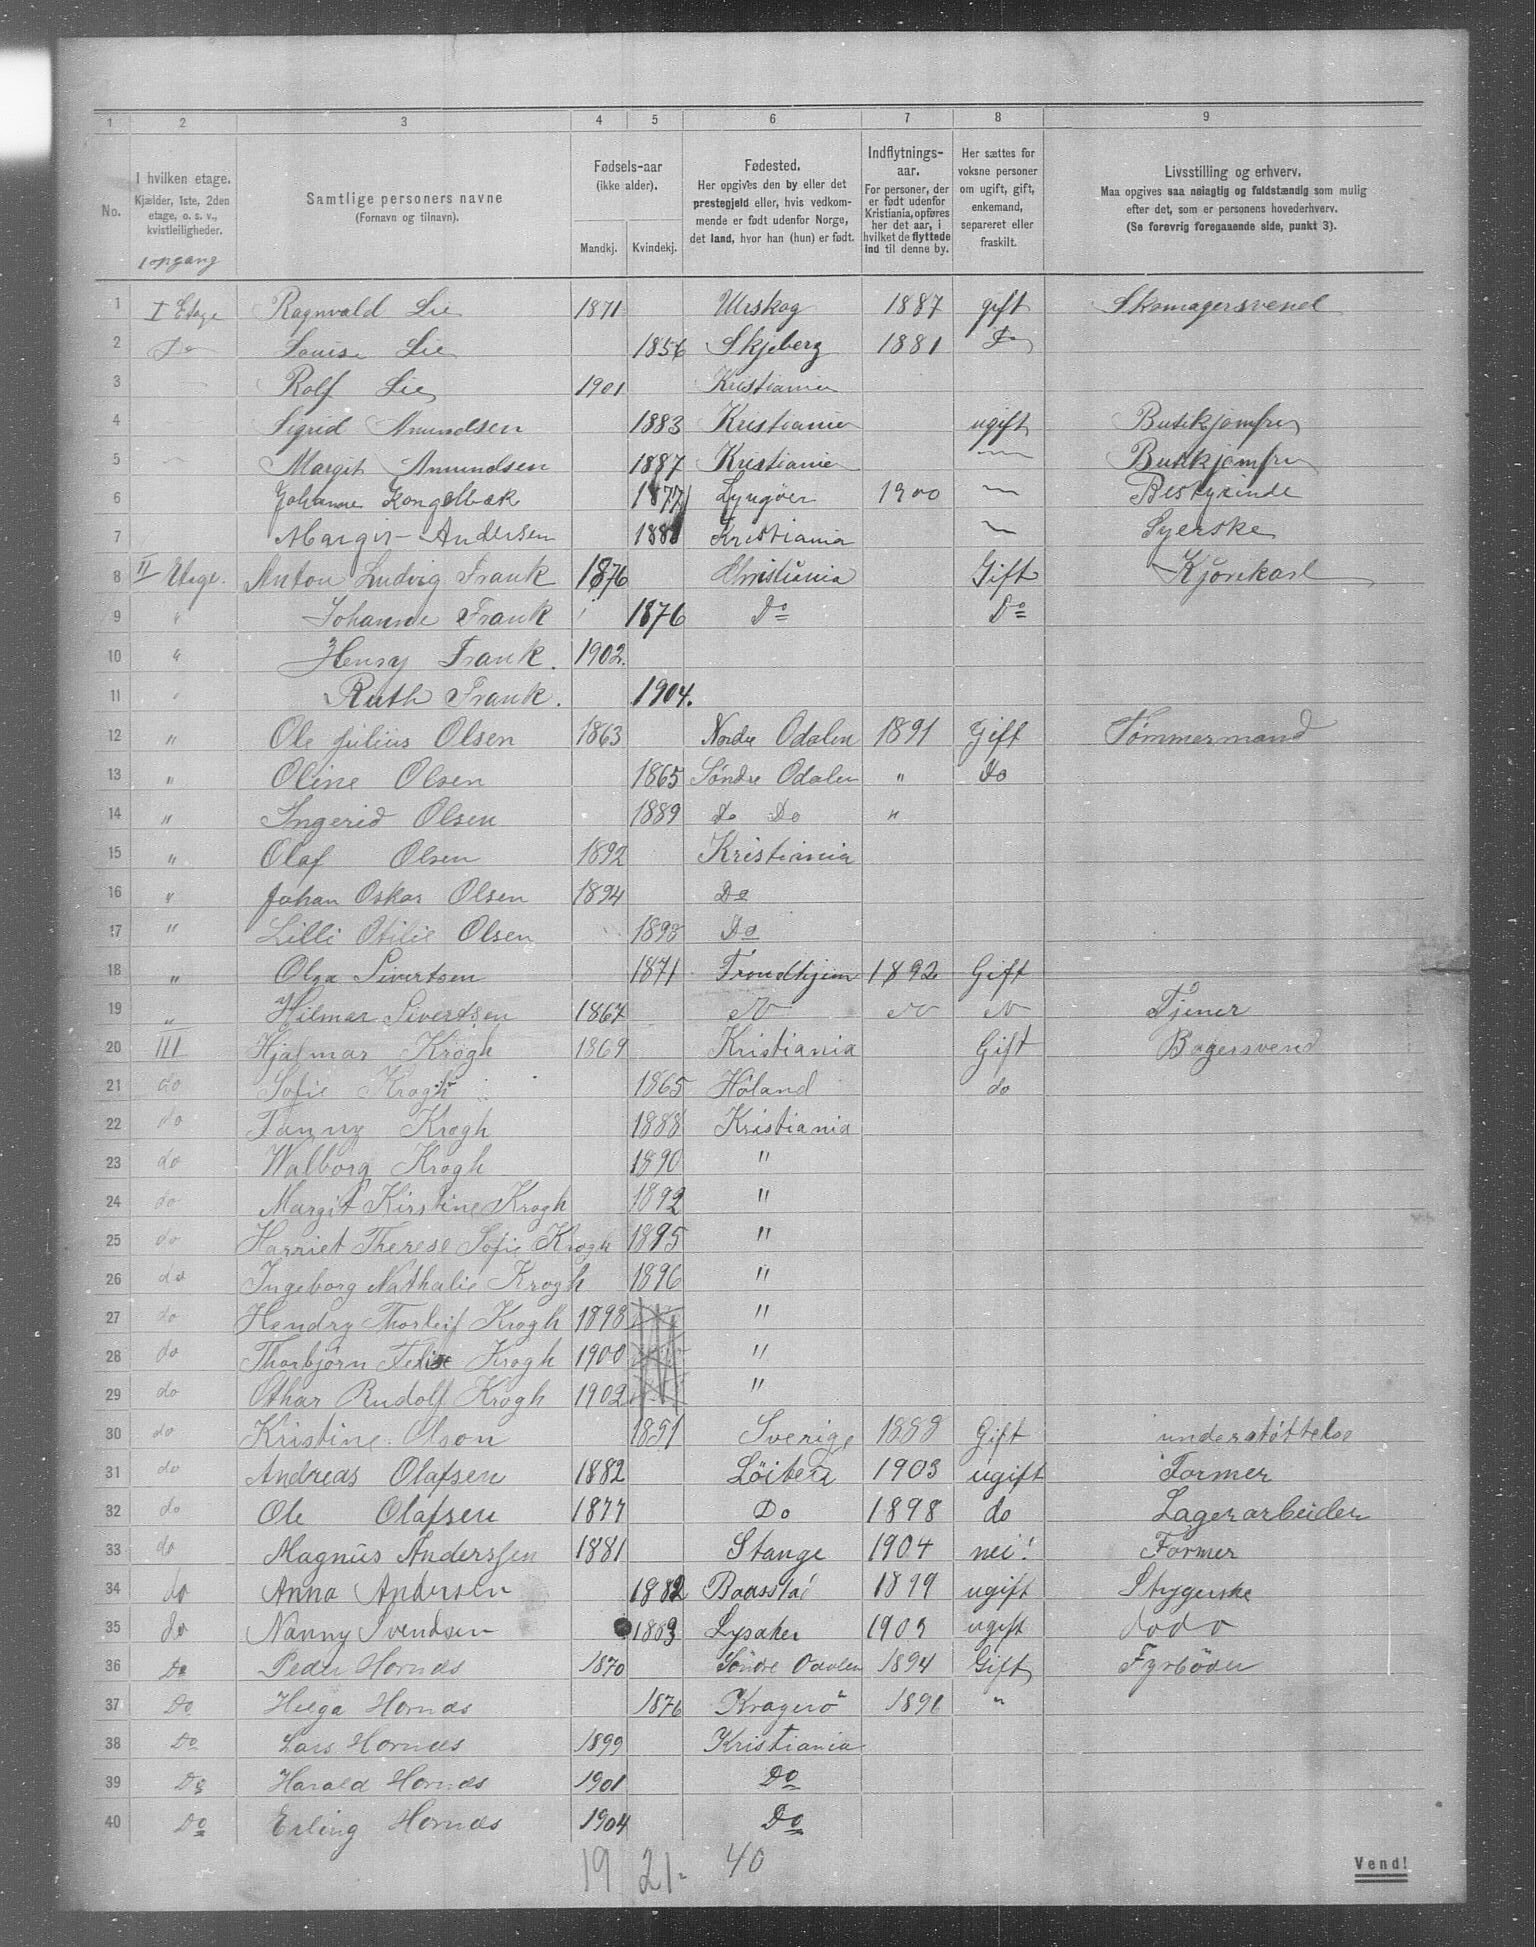 1 2 3 4 5 6 7 8 9
No. I hvilken etage. Kjælder, 1ste, 2den etage, o. s. v., kvistleiligheder. 1 opgang
Samtlige personers navne (Fornavn og tilnavn).
Fødsels-aar (ikke alder). Mandkj. Kvindekj.
Fødested. Her opgives den by eller det prestegjeld eller, hvis vedkommende er født udenfor Norge, det land, hvor han (hun) er født.
Indflytnings-aar. For personer, der er født udenfor Kristiania, opføres her det aar, i hvilket de flyttede ind til denne by.
Her sættes for voksne personer om ugift, gift, enkemand, separeret eller fraskilt.
Livsstilling og erhverv. Maa opgives saa nøiagtig og fuldstændig som mulig efter det, som er personens hovederhverv. (Se forøvrig foregaaende side, punkt 3).
1 I Etage Ragnvald Lie 1871 Urskog 1887 gift Skomagersvend
2 Do Louise Lie 1856 Skjeberg 1881 Do
3 Rolf Lie 1901 Kristiania
4 Sigrid Amundsen 1883 Kristiania ugift Butikjomfru
5 Margit Amundsen 1887 Kristiania — Butikjomfru
6 Johanne Kongelbæk 1877 Lyngöer 1900 — Bestyrinde
7 Margit Andersen 188 Kristiania — Syerske
8 II Etage. Anton Ludvig Frank 1876 Christiania Gift Kjørekarl
9 " Johanne Frank 1876 Do Do
10 " Henry Frank. 1902.
11 " Ruth Frank. 1904.
12 " Ole Julius Olsen 1863 Nordre Odalen 1891 Gift Tømmermand
13 " Oline Olsen 1865 Søndre Odalen " Do
14 " Ingerid Olsen 1889 Do Do "
15 " Olaf Olsen 1892 Kristiania
16 " Johan Oskar Olsen 1894 Do
17 " Lilli Otilie Olsen 1898 Do
18 " Olga Sivertsen 1871 Trondhjem 1892 Gift
19 " Hilmar Sivertsen 1867 Tjener
20 III Hjalmar Krogh 1869 Kristiania Gift Bagersvend
21 do Sofie Krogh 1865 Høland do
22 do Fanny Krogh 1888 Kristiania
23 do Walborg Krogh 1890 "
24 do Margit Kirstine Krogh 1892 "
25 do Harriet Therese Sofie Krogh 1895 "
26 do Ingeborg Nathalie Krogh 1896 "
27 do Hendry Thorleif Krogh 1898 "
28 do Thorbjørn Krogh 1900 "
29 do Othar Rudolf Krogh 1902 "
30 do Kristine Olson 1851 Sverige 1888 Gift understøttelse
31 do Andreas Olafsen 1882 Löiten 1903 ugift Former
32 do Ole Olafsen 1877 Do 1898 do Lagerarbeider
33 do Magnus Anderssen 1881 Stange 1904 nei! Former
34 do Anna Andersen 1882 Baasstad 1899 ugift Strygerske
35 do Nanny Svendsen 1883 Lysaker 1903 ugift do do
36 Do Peder Hornæs 1870 Söndre Odalen 1894 Gift Fyrböder
37 Do Helga Hornæs 1876 Kragerö 1891 "
38 Do Lars Hornæs 1899 Kristiania
39 Do Harald Hornæs 1901 Do
40 Do Erling Hornæs 1904 Do
19 21- 40
Vend!